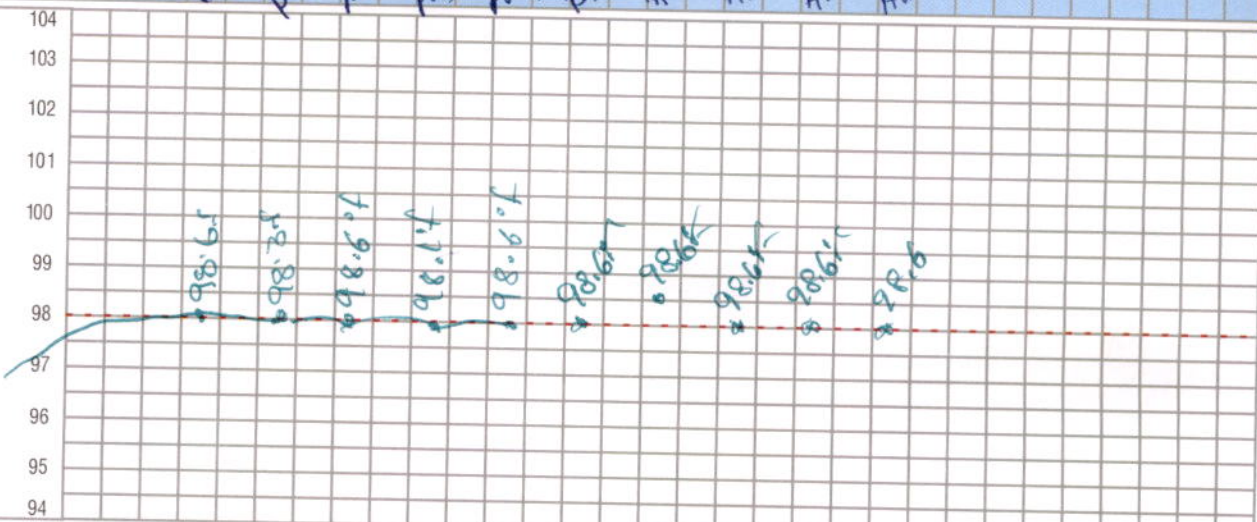 104
103
102
101
100
99
98
97
96
95
94
98.6F
98.3F
98.6°f
98.1°f
98.6°f
98.6F
98.6F
98.6F
98.6F
98.6